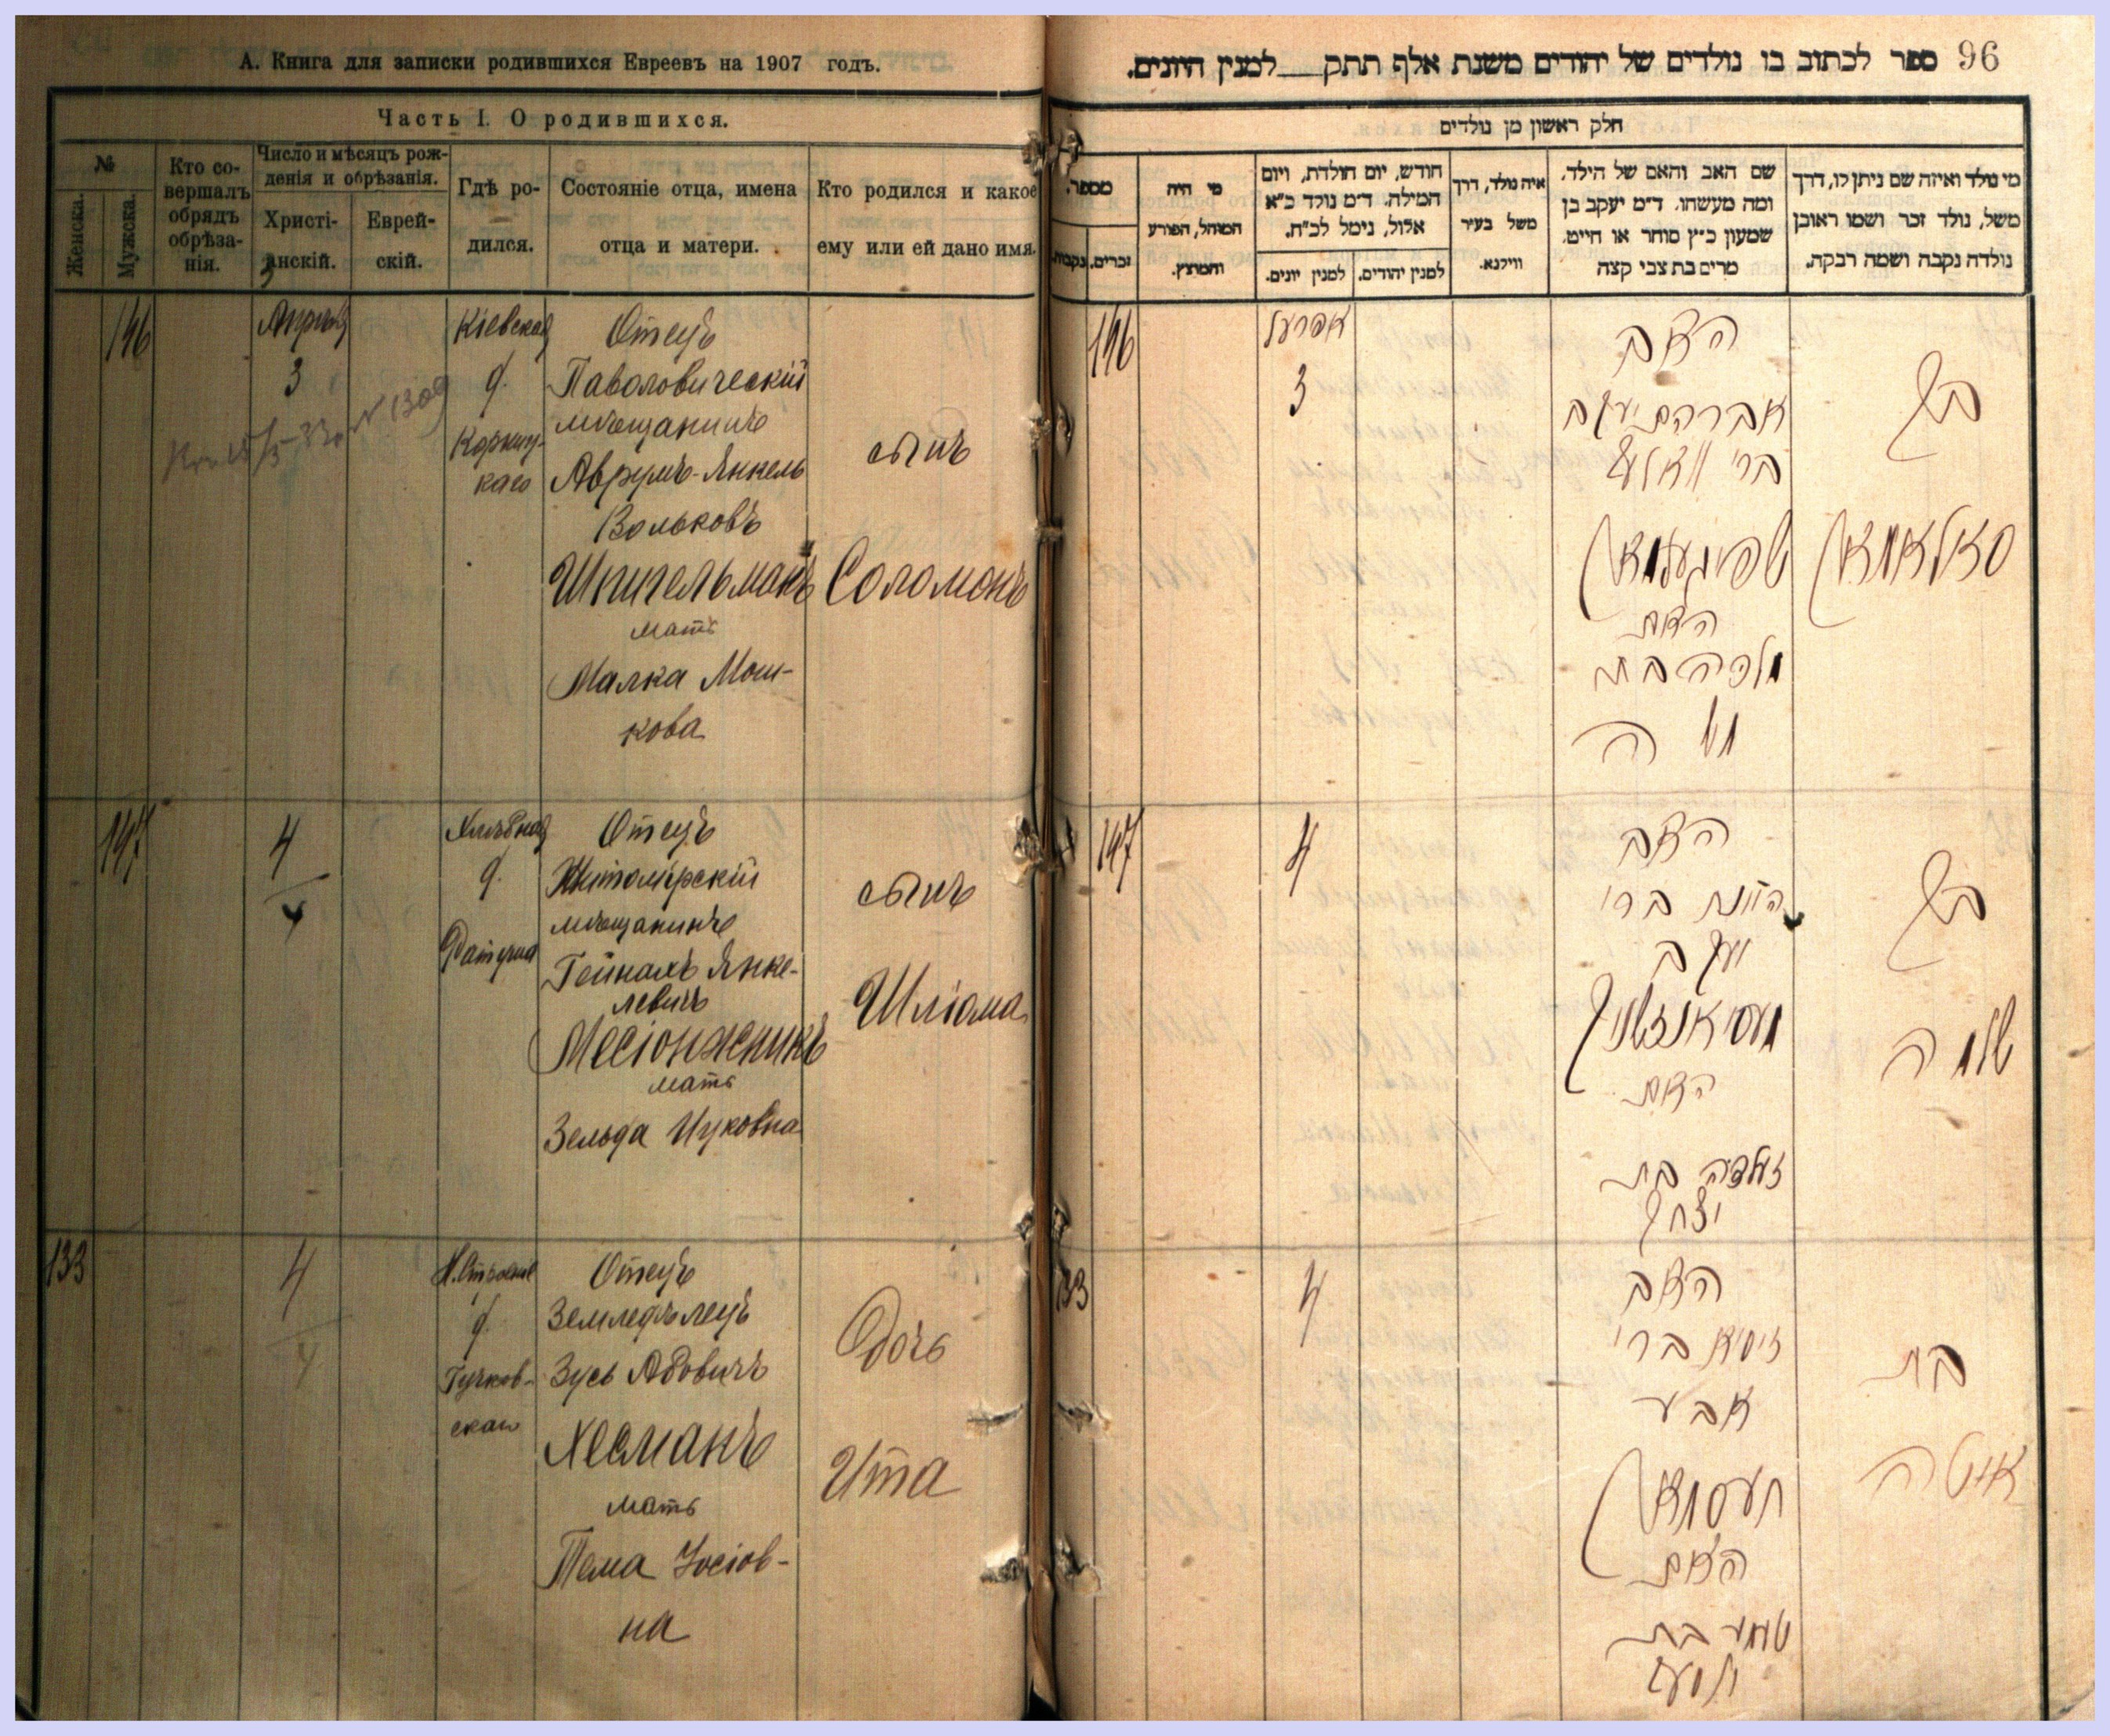 А. Книга для записки родившихся Евреевъ на 1907 годъ.
Часть I. О родившихся.
№
Женска.
Мужска.
Кто со-
вершалъ
обрядъ
обрѣза-
нія.
Число и мѣсяцъ рож-
денія и обрѣзанія.
Христі-
анскій.
Еврей-
скій.
Гдѣ ро-
дился.
Состояніе отца, имена
отца и матери.
Кто родился и какое
ему или ей дано имя.
146
3
Кіевская
д.
Отецъ
Паволовическій
мѣщанинъ
Аврумъ-Янкель
Вольковъ
Шпигельманъ
мать
Малка Мош-
кова
сынъ
Соломонъ
147
4
4
Хлѣбная
д.
Отецъ
Житомірскій
мѣщанинъ
Гейнахъ Янке-
левичъ
Месіонжникъ
мать
Зельда Ицковна
сынъ
Шліома
133
4
4
д.
Гучков-
скаго
Отецъ
Земледѣлецъ
Зусь Абовичъ
Хесманъ
мать
Тема Іосіов-
на
Дочь
Ита
96
ספר לכתוב בו נולדים של יהודים משנת אלף תתק למנין היונים.
חלק ראשון מן נולדים
מספר.
זכרים.
נקבות.
מי היה
המוהל, הפורע
והמוצץ.
חודש, יום הולדת, ויום
המילה. ד״מ נולד כ״א
אלול, נימל לכ״ח.
למנין יונים.
למנין יהודים.
איה נולד, דרך
משל בעיר
ווילנא.
שם האב והאם של הילד,
ומה מעשהו. ד״מ יעקב בן
שמעון כ״ץ סוחר או חייט,
מרים בת צבי קצה
מי נולד ואיזה שם ניתן לו, דרך
משל, נולד זכר ושמו ראובן
נולדה נקבה ושמה רבקה.
146
אפרעל
3
האב
אברהם יעקב
ברי וואלף
שפיגעלמאן
האם
מלכה בת
משה
בן
סאלאמאן
147
4
האב
העונך ברי
יעקב
מעסיאנזשניק
האם
זעלדה בת
יצחק
בן
שלמה
133
4
האב
זיסיא ברי
אבע
חעסמאן
האם
טעמע בת
בת
איטה